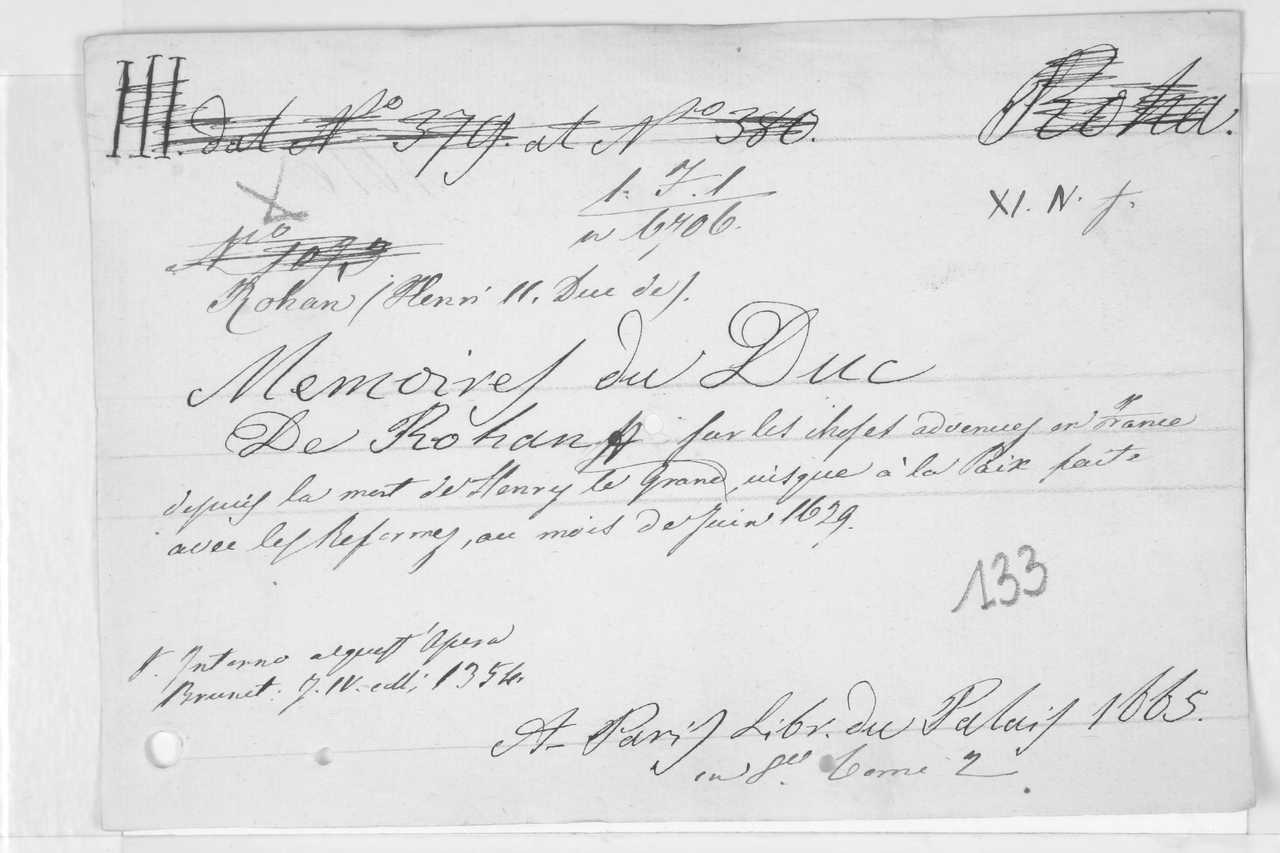 III. dal Nº 379. at Nº 380.
Roha.
1. 7. 1
XI. N. f.
6706.
Nº
Rohan (Henri II. Duc de).
Memoires du Duc
De Rohan sur les choses advenues en France
depuis la mort de Henry le Grand, iusque à la Paix faite
avec les Reformes, au mois de Juin 1629.
133
V. Intorno a quest' Opera
Brunet. T. IV. coll. 1354.
A Paris Libr. du Palais 1665.
in 8º Tomi 2